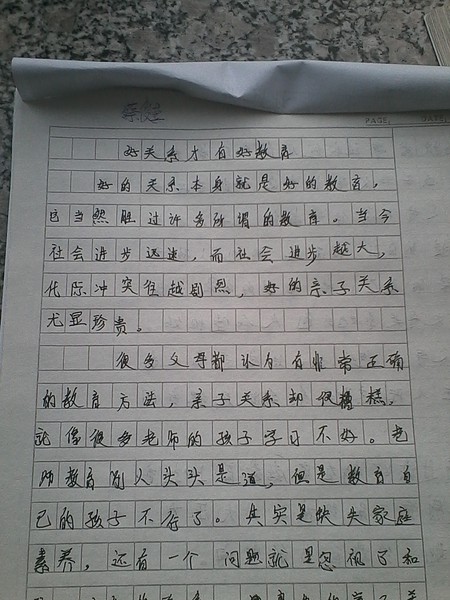 PAGE:
DATE:
好关系才有好教育
好的关系本身就是好的教育，
已当然胜过许多所谓的教育。当今
社会进步迅速，而社会进步越大，
代际冲突往越剧烈，好的亲子关系
尤显珍贵。
很多父母都认为有非常正确
的教育方法，亲子关系却很糟糕，
就像很多老师的孩子学习不好。老
师教育别人头头是道，但是教育自
己的孩子不行了。其实是缺失家庭
素养，还有一个问题就是忽视了和